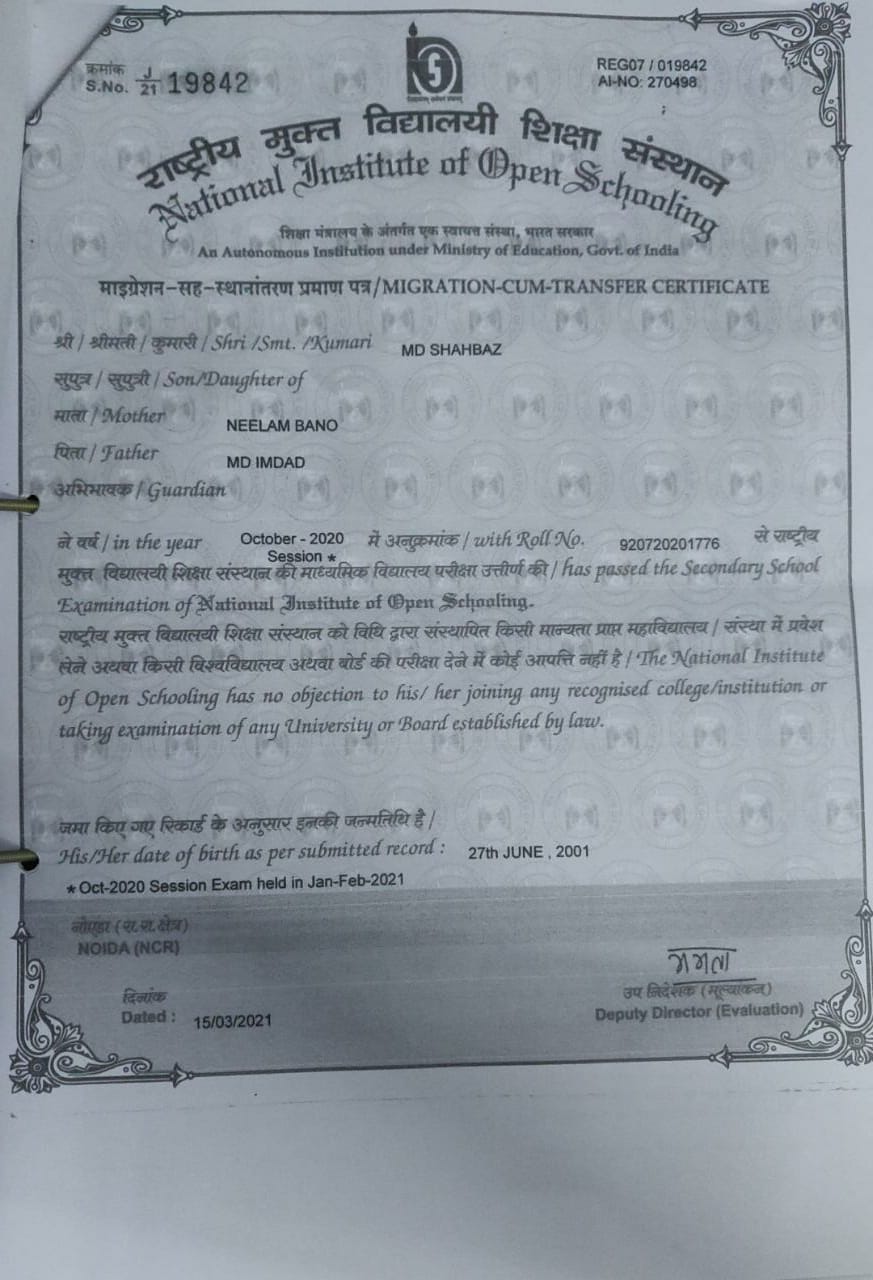 क्रमांक
S.No. J/21 19842
REG07 / 019842
AI-NO: 270498
राष्ट्रीय मुक्त विद्यालयी शिक्षा संस्थान
National Institute of Open Schooling
शिक्षा मंत्रालय के अंतर्गत एक स्वायत्त संस्था, भारत सरकार
An Autonomous Institution under Ministry of Education, Govt. of India
माइग्रेशन-सह-स्थानांतरण प्रमाण पत्र/MIGRATION-CUM-TRANSFER CERTIFICATE
श्री / श्रीमती / कुमारी / Shri /Smt. /Kumari MD SHAHBAZ
सुपुत्र / सुपुत्री / Son/Daughter of
माता / Mother NEELAM BANO
पिता / Father MD IMDAD
अभिभावक / Guardian
ने वर्ष / in the year October - 2020 में अनुक्रमांक / with Roll No. 920720201776 से राष्ट्रीय
Session *
मुक्त विद्यालयी शिक्षा संस्थान की माध्यमिक विद्यालय परीक्षा उत्तीर्ण की / has passed the Secondary School
Examination of National Institute of Open Schooling.
राष्ट्रीय मुक्त विद्यालयी शिक्षा संस्थान को विधि द्वारा संस्थापित किसी मान्यता प्राप्त महाविद्यालय / संस्था में प्रवेश
लेने अथवा किसी विश्वविद्यालय अथवा बोर्ड की परीक्षा देने में कोई आपत्ति नहीं है / The National Institute
of Open Schooling has no objection to his/ her joining any recognised college/institution or
taking examination of any University or Board established by law.
जमा किए गए रिकार्ड के अनुसार इनकी जन्मतिथि है /
His/Her date of birth as per submitted record : 27th JUNE , 2001
* Oct-2020 Session Exam held in Jan-Feb-2021
नोएडा (रा.रा.क्षेत्र)
NOIDA (NCR)
ममता
उप निदेशक (मूल्यांकन)
Deputy Director (Evaluation)
दिनांक
Dated : 15/03/2021